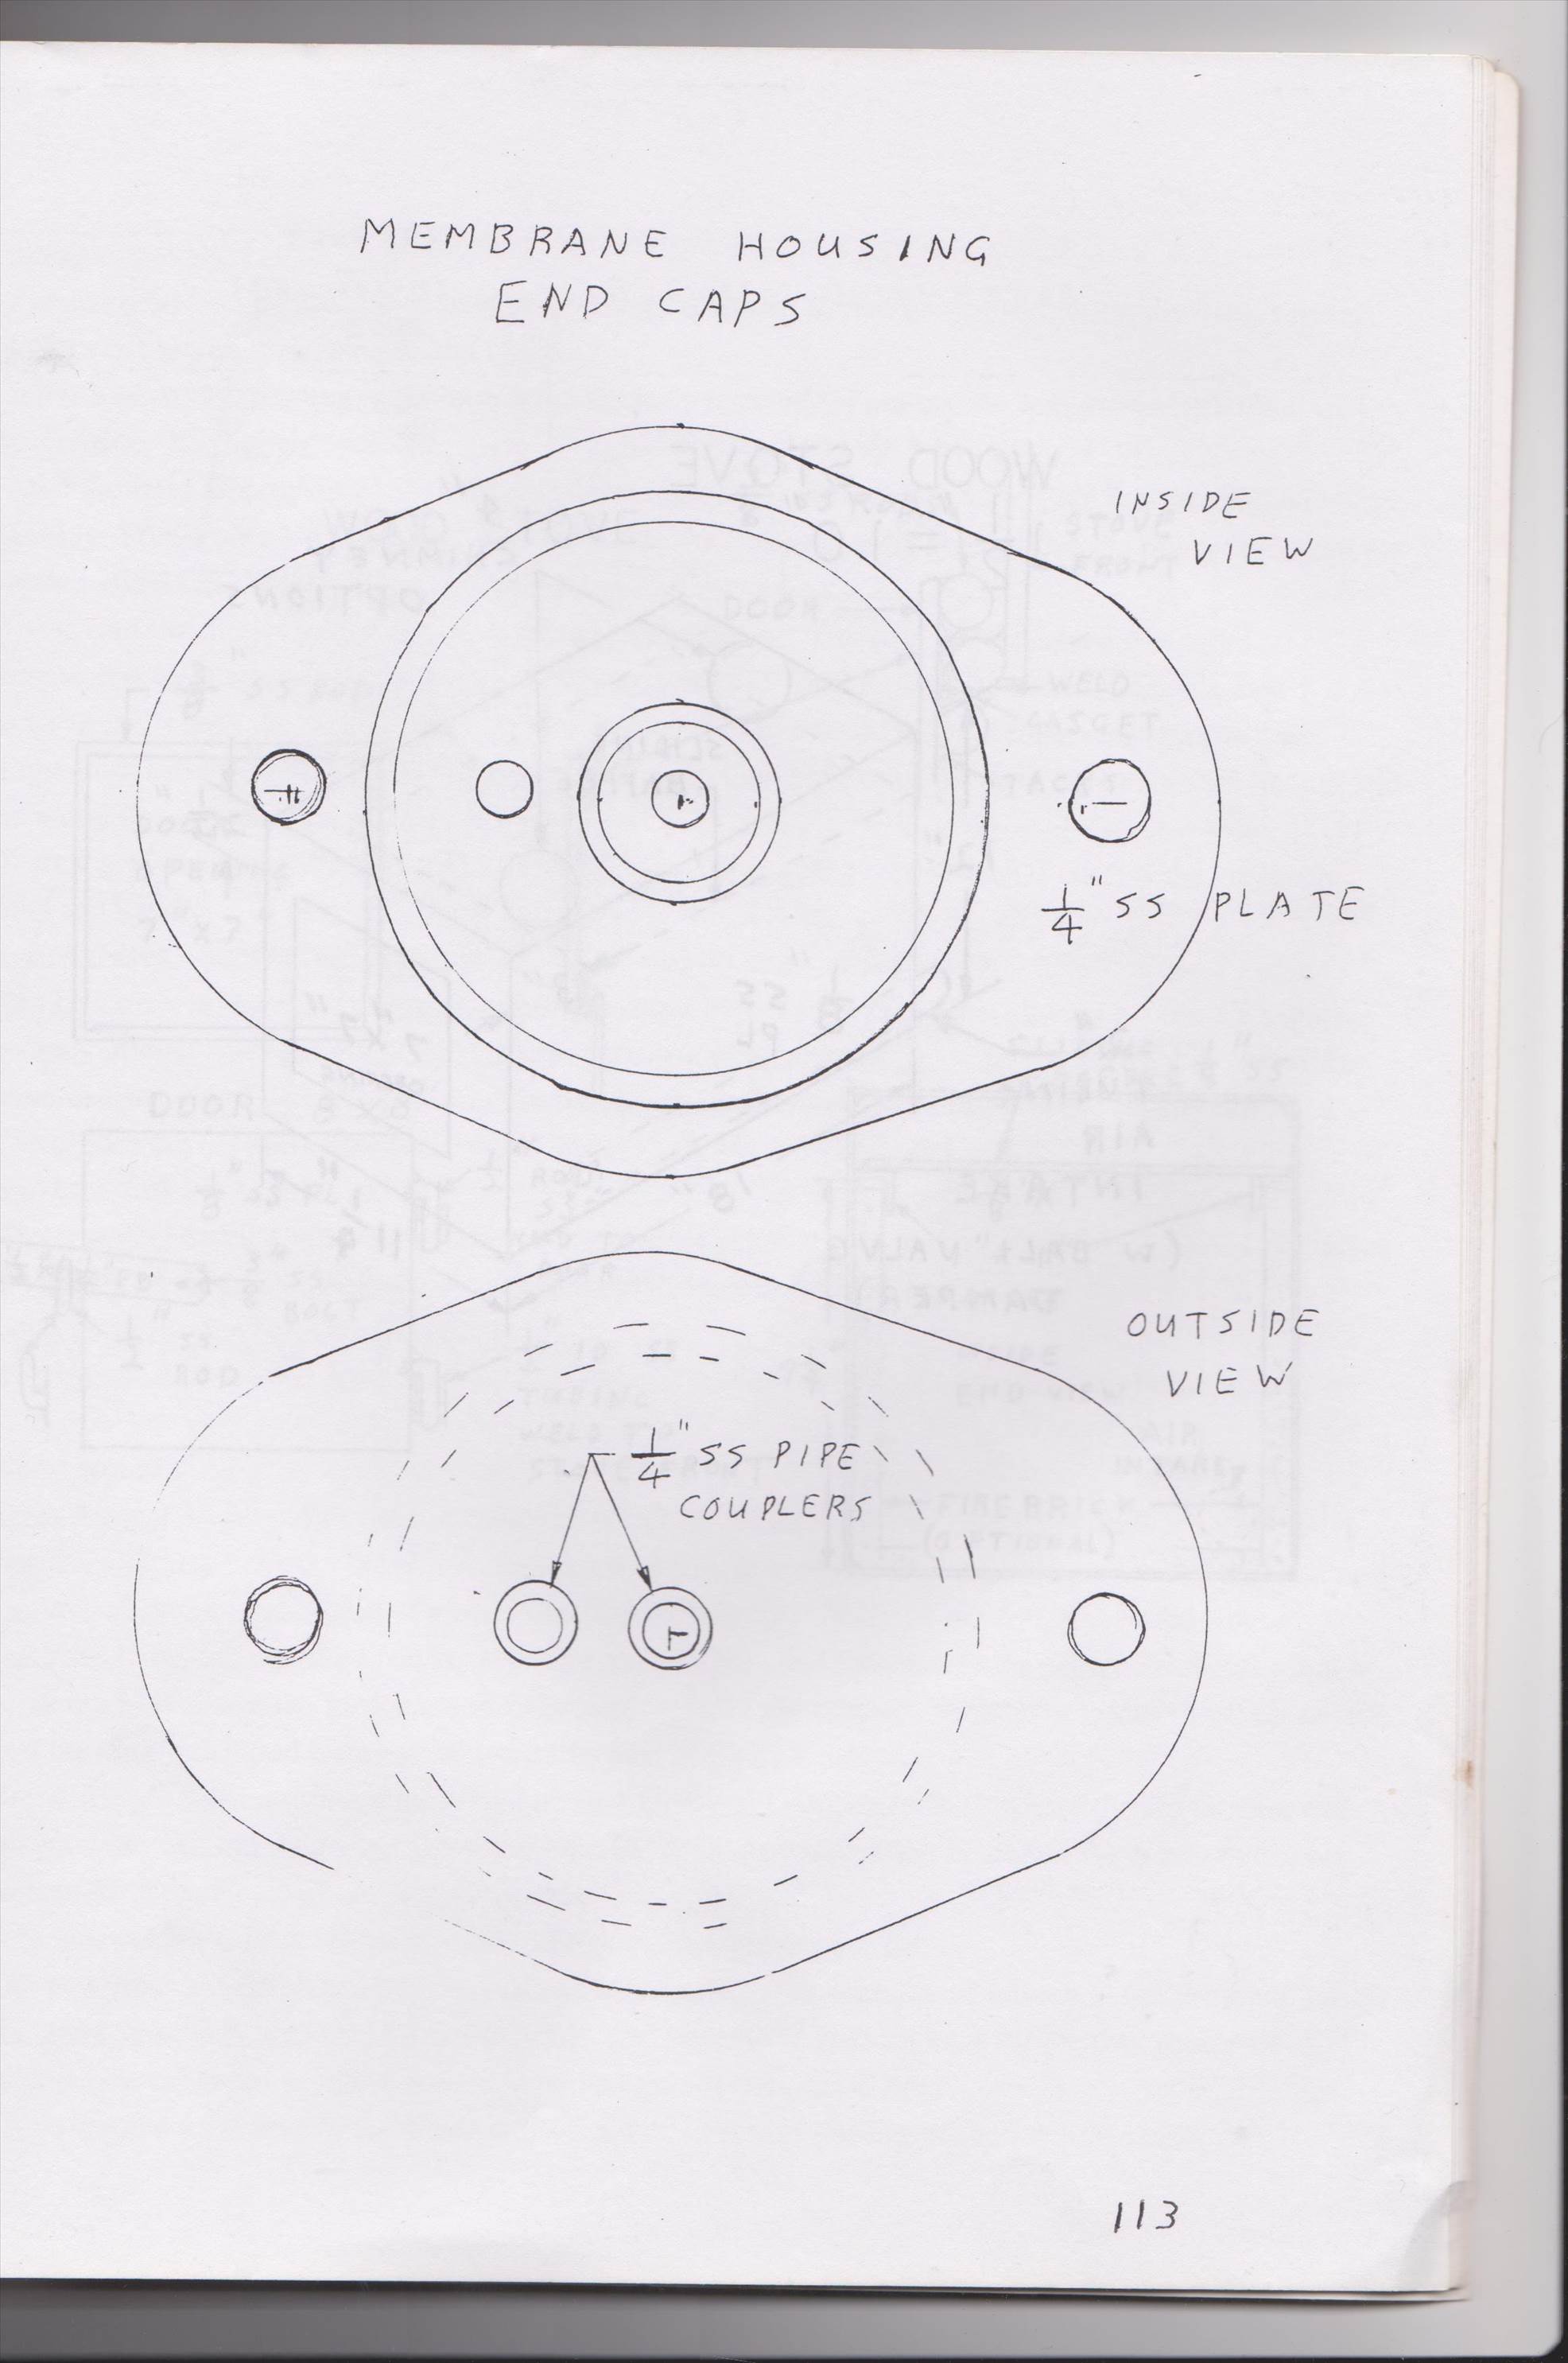 MEMBRANE HOUSING
END CAPS
INSIDE
VIEW
1/4" SS PLATE
OUTSIDE
VIEW
1/4" SS PIPE
COUPLERS
113